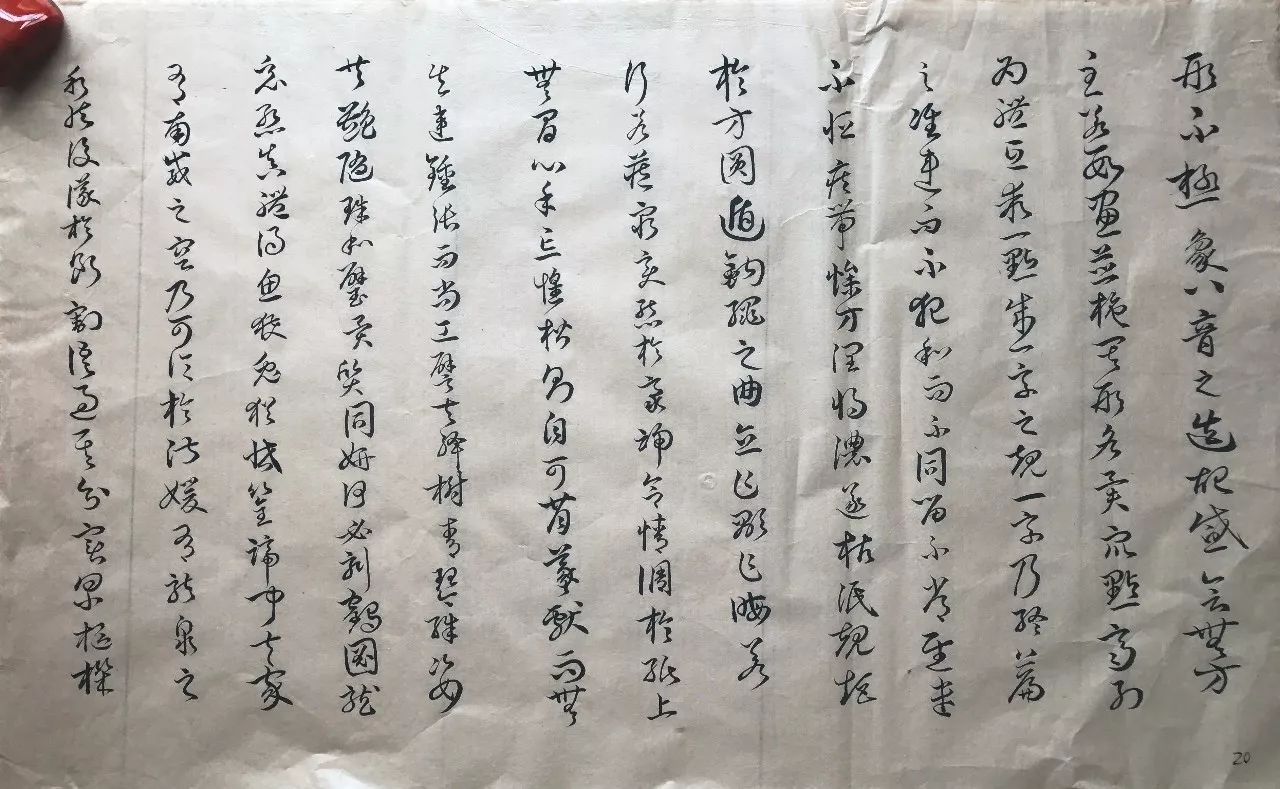 形不極象八音之迭起感會無方
至若數畫並施其形各異眾點齊列
為體互乖一點成一字之規一字乃終篇
之准違而不犯和而不同留不常遲遣
不恒疾帶燥方潤將濃遂枯泯規矩
於方圓遁鉤繩之曲直乍顯乍晦若
行若藏窮變態於豪端合情調於紙上
無間心手忘懷楷則自可背羲獻而無
失違鍾張而尚工譬夫絳樹青琴殊姿
共艷隨珠和璧異質同妍何必刻鶴圖龍
竟慚真體得魚獲兔猶恡筌蹄聞夫家
有南威之容乃可論於淑媛有龍泉之
利然後議於斷割語過其分實累樞機
20